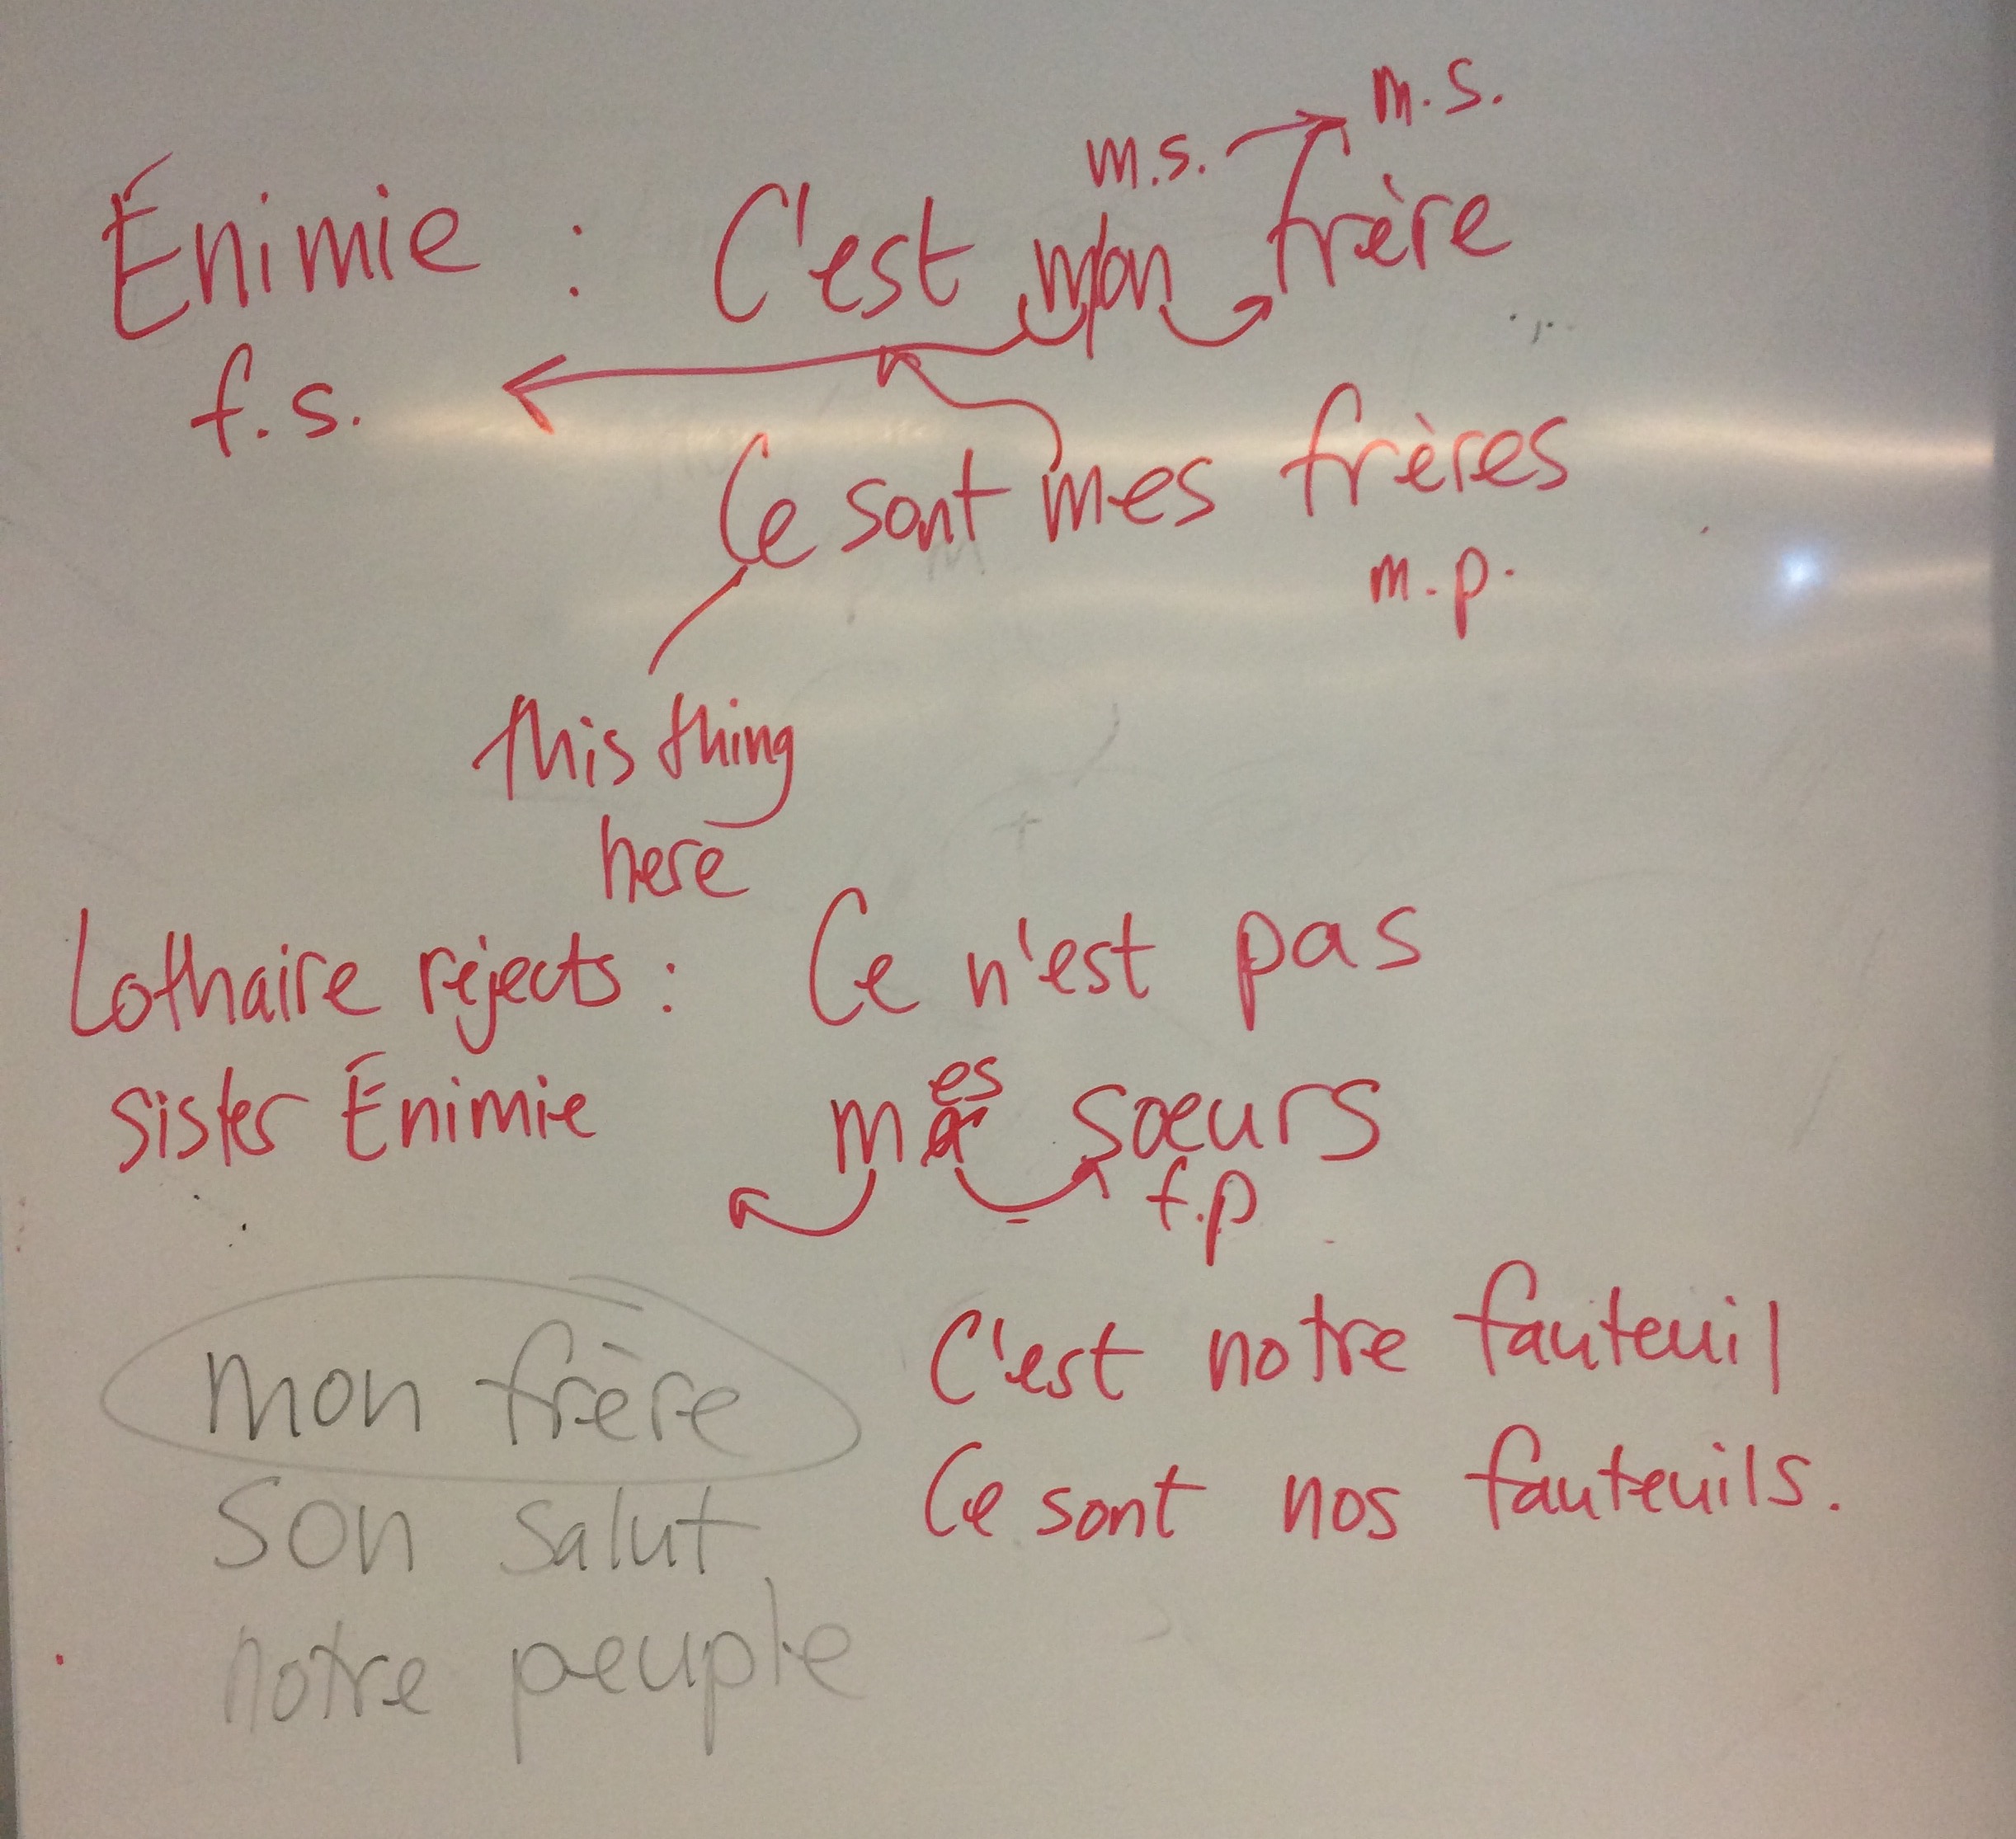 m.s.
m.s.
Énimie : C'est mon frère
f.s.
Ce sont mes frères
m.p.
this thing
here
Lothaire rejects : Ce n'est pas
sister Énimie mes sœurs
f.p
mon frère
C'est notre fauteuil
son salut
Ce sont nos fauteuils.
notre peuple